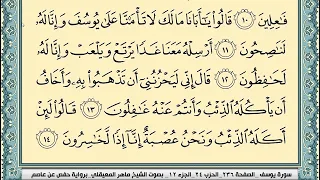 فَٰعِلِينَ ۝١٠ قَالُوا۟ يَٰٓأَبَانَا مَالَكَ لَا تَأْمَ۫نَّا عَلَىٰ يُوسُفَ وَإِنَّا لَهُۥ
لَنَٰصِحُونَ ۝١١ أَرْسِلْهُ مَعَنَا غَدًا يَرْتَعْ وَيَلْعَبْ وَإِنَّا لَهُۥ
لَحَٰفِظُونَ ۝١٢ قَالَ إِنِّى لَيَحْزُنُنِىٓ أَن تَذْهَبُوا۟ بِهِۦ وَأَخَافُ
أَن يَأْكُلَهُ ٱلذِّئْبُ وَأَنتُمْ عَنْهُ غَٰفِلُونَ ۝١٣ قَالُوا۟ لَئِنْ
أَكَلَهُ ٱلذِّئْبُ وَنَحْنُ عُصْبَةٌ إِنَّآ إِذًا لَّخَٰسِرُونَ ۝١٤
سورة يوسف - الصفحة ٢٣٦ - الحزب ٢٤ - الجزء ١٢ - بصوت الشيخ ماهر المعيقلي برواية حفص عن عاصم